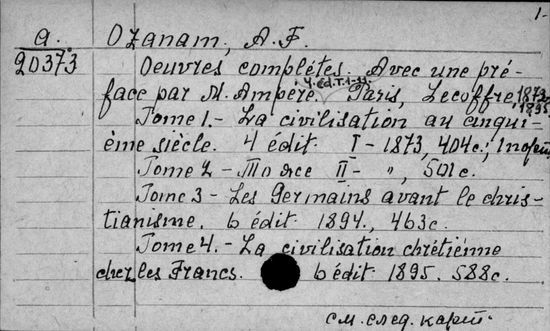 1-
a. Ozanam, A. F.
20373 Oeuvres complétes. Avec une pré-
4. éd. T. 1-11.
face par M. Ampère. Paris, Lecoffre, 1873,
1895.
Tome 1.- La civilisation au cinqui-
ème siècle. 4 édit. I - 1873, 404c.;
Tome 2 - То же II - ", 501c.
Tome 3 - Les Germains avant le chris-
tianisme. 6 édit. 1894., 463c.
Tome 4. - La civilisation chrétiénne
chez les Francs. 6 édit. 1895. 588c.
см. след. карт.